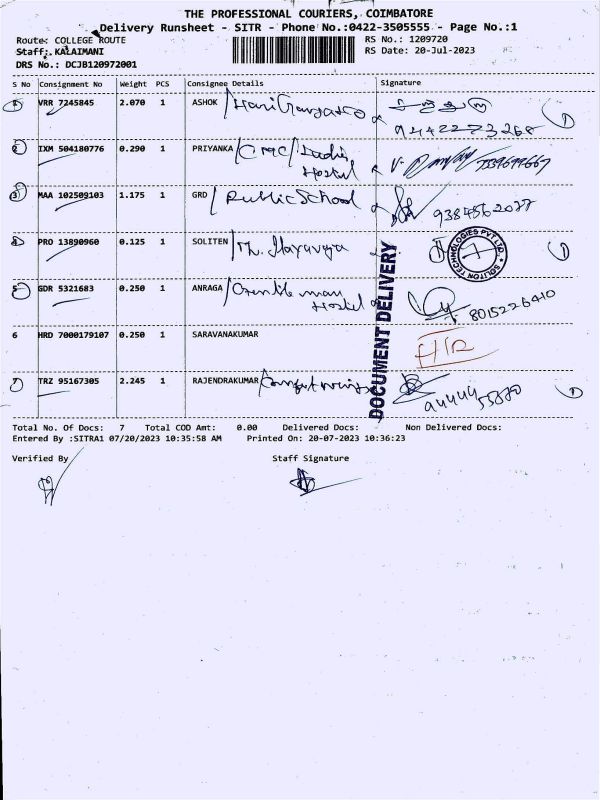 THE PROFESSIONAL COURIERS, COIMBATORE
Delivery Runsheet - SITR - Phone No.:0422-3505555 - Page No.:1
Route: COLLEGE ROUTE RS No.: 1209720
Staff: KALAIMANI RS Date: 20-Jul-2023
DRS No.: DCJB120972001
S No Consignment No Weight PCS Consignee Details Signature
1 VRR 7245845 2.070 1 ASHOK
9442273268
2 IXM 504180776 0.290 1 PRIYANKA / Ladies Hostel
3 MAA 102509103 1.175 1 GRD / Public School 9384562037
4 PRO 13890960 0.125 1 SOLITEN
SOLITON TECHNOLOGIES PVT LTD.
5 GDR 5321683 0.250 1 ANRAGA / Hostel 8015226410
6 HRD 7000179107 0.250 1 SARAVANAKUMAR
7 TRZ 95167305 2.245 1 RAJENDRAKUMAR
DOCUMENT DELIVERY
Total No. Of Docs: 7 Total COD Amt: 0.00 Delivered Docs: Non Delivered Docs:
Entered By :SITRA1 07/20/2023 10:35:58 AM Printed On: 20-07-2023 10:36:23
Verified By Staff Signature